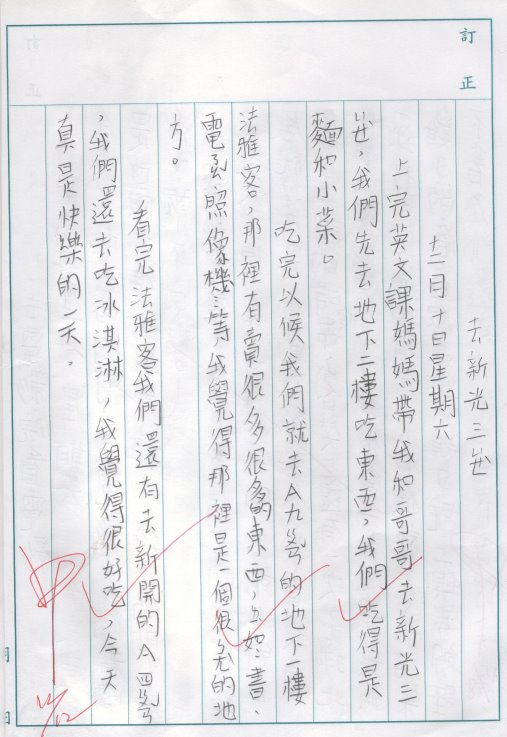 訂正
去新光三ㄩㄝ
十二月十日星期六
上完英文課媽媽帶我和哥哥去新光三
ㄩㄝ，我們先去地下二樓吃東西，我們吃得是
麵和小菜。
吃完以候我們就去A九的地下一樓
法雅客，那裡有賣很多很多的東西，如：書、
電、照像機…等，我覺得那裡是一個很的地
方。
看完法雅客我們還有去新開的A四
，我們還去吃冰淇淋，我覺得很好吃，今天
真是快樂的一天。
甲